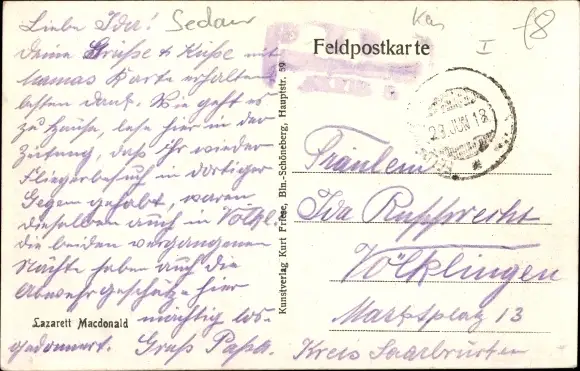 Liebe Ida! Sedan
deine Grüße & Küße mit
Mamas Karte erhalten
besten Dank. Wie geht es
zu Hause, lese hier in der
Zeitung, daß Ihr wieder
Fliegerbesuch in dortiger
Gegen gehabt, waren
dieselben auch in Völkl.
die beiden vergangenen
Nächte haben auch die
Abwehrgeschütze hier
Lazarett Macdonald mächtig los-
gedonnert. Gruß Papa.
Kunstverlag Kurt Friese, Bln.-Schöneberg, Hauptstr. 59
Feldpostkarte
I
23 JUN 18
Fräulein
Ida Rupprecht
Völklingen
Marktplatz 13
Kreis Saarbrücken